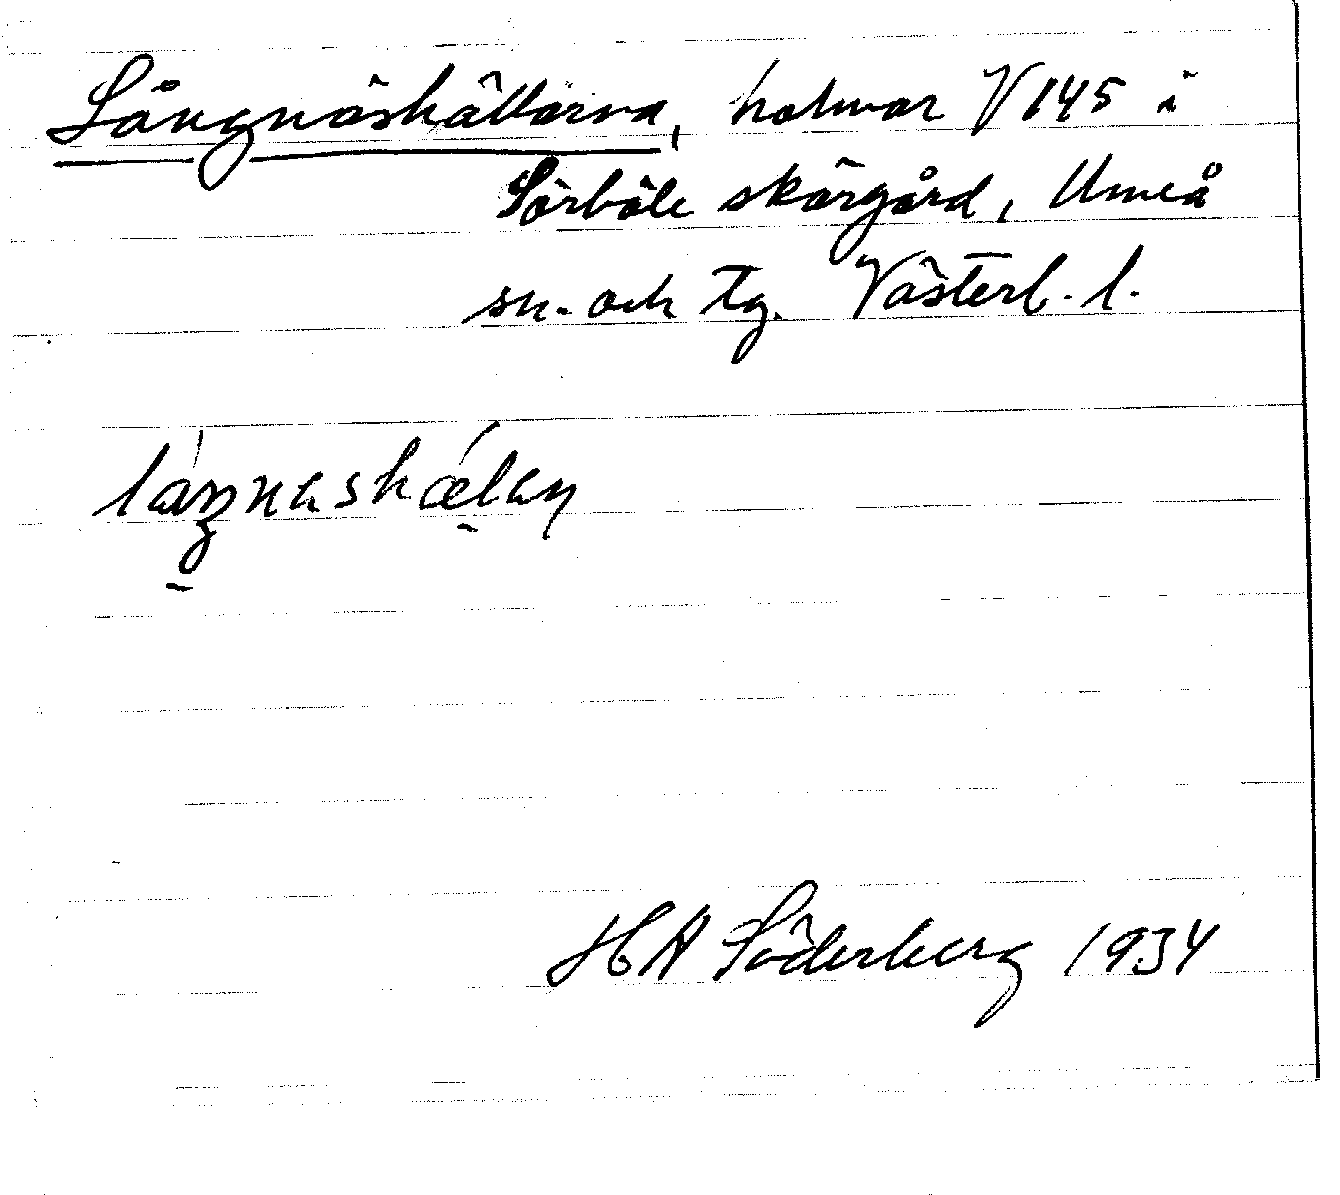 Långnäshällarna, holmar V 145 i
Sörböle skärgård, Umeå
sn. och tg. Västerb. l.
láŋnashǽlan
HA Söderberg 1934